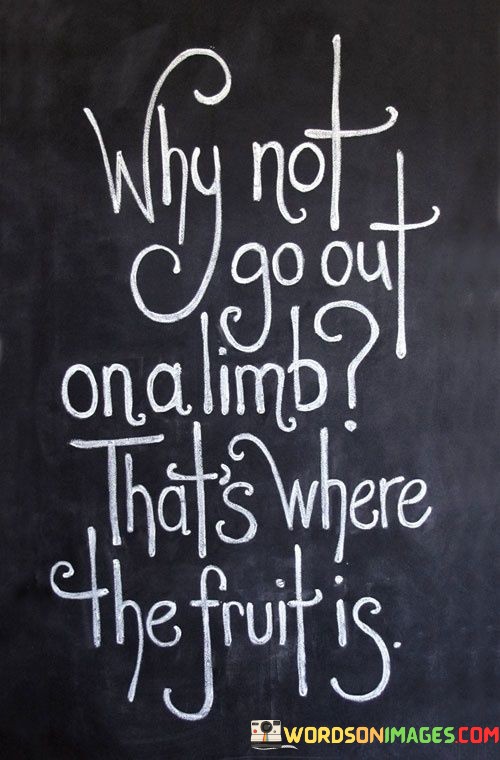 Why not
go out
on a limb?
That's where
the fruit is.
WORDSONIMAGES.COM